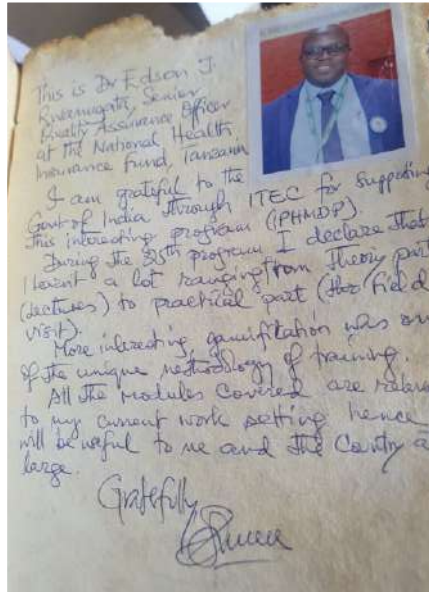 This is Dr Edson J.
Rwamugata, Senior
Quality Assurance Officer
at the National Health
Insurance Fund, Tanzania
I am grateful to the
Govt of India through ITEC for supporting
this interesting program (IPHMDP).
During the 35th program I declare that
I learnt a lot ranging from Theory part
(Lectures) to practical part (field
visit).
More interesting, gamification was on
of the unique methodology of training.
All the modules covered are releva
to my current work setting hence
will be useful to me and the Country a
large.
Gratefully